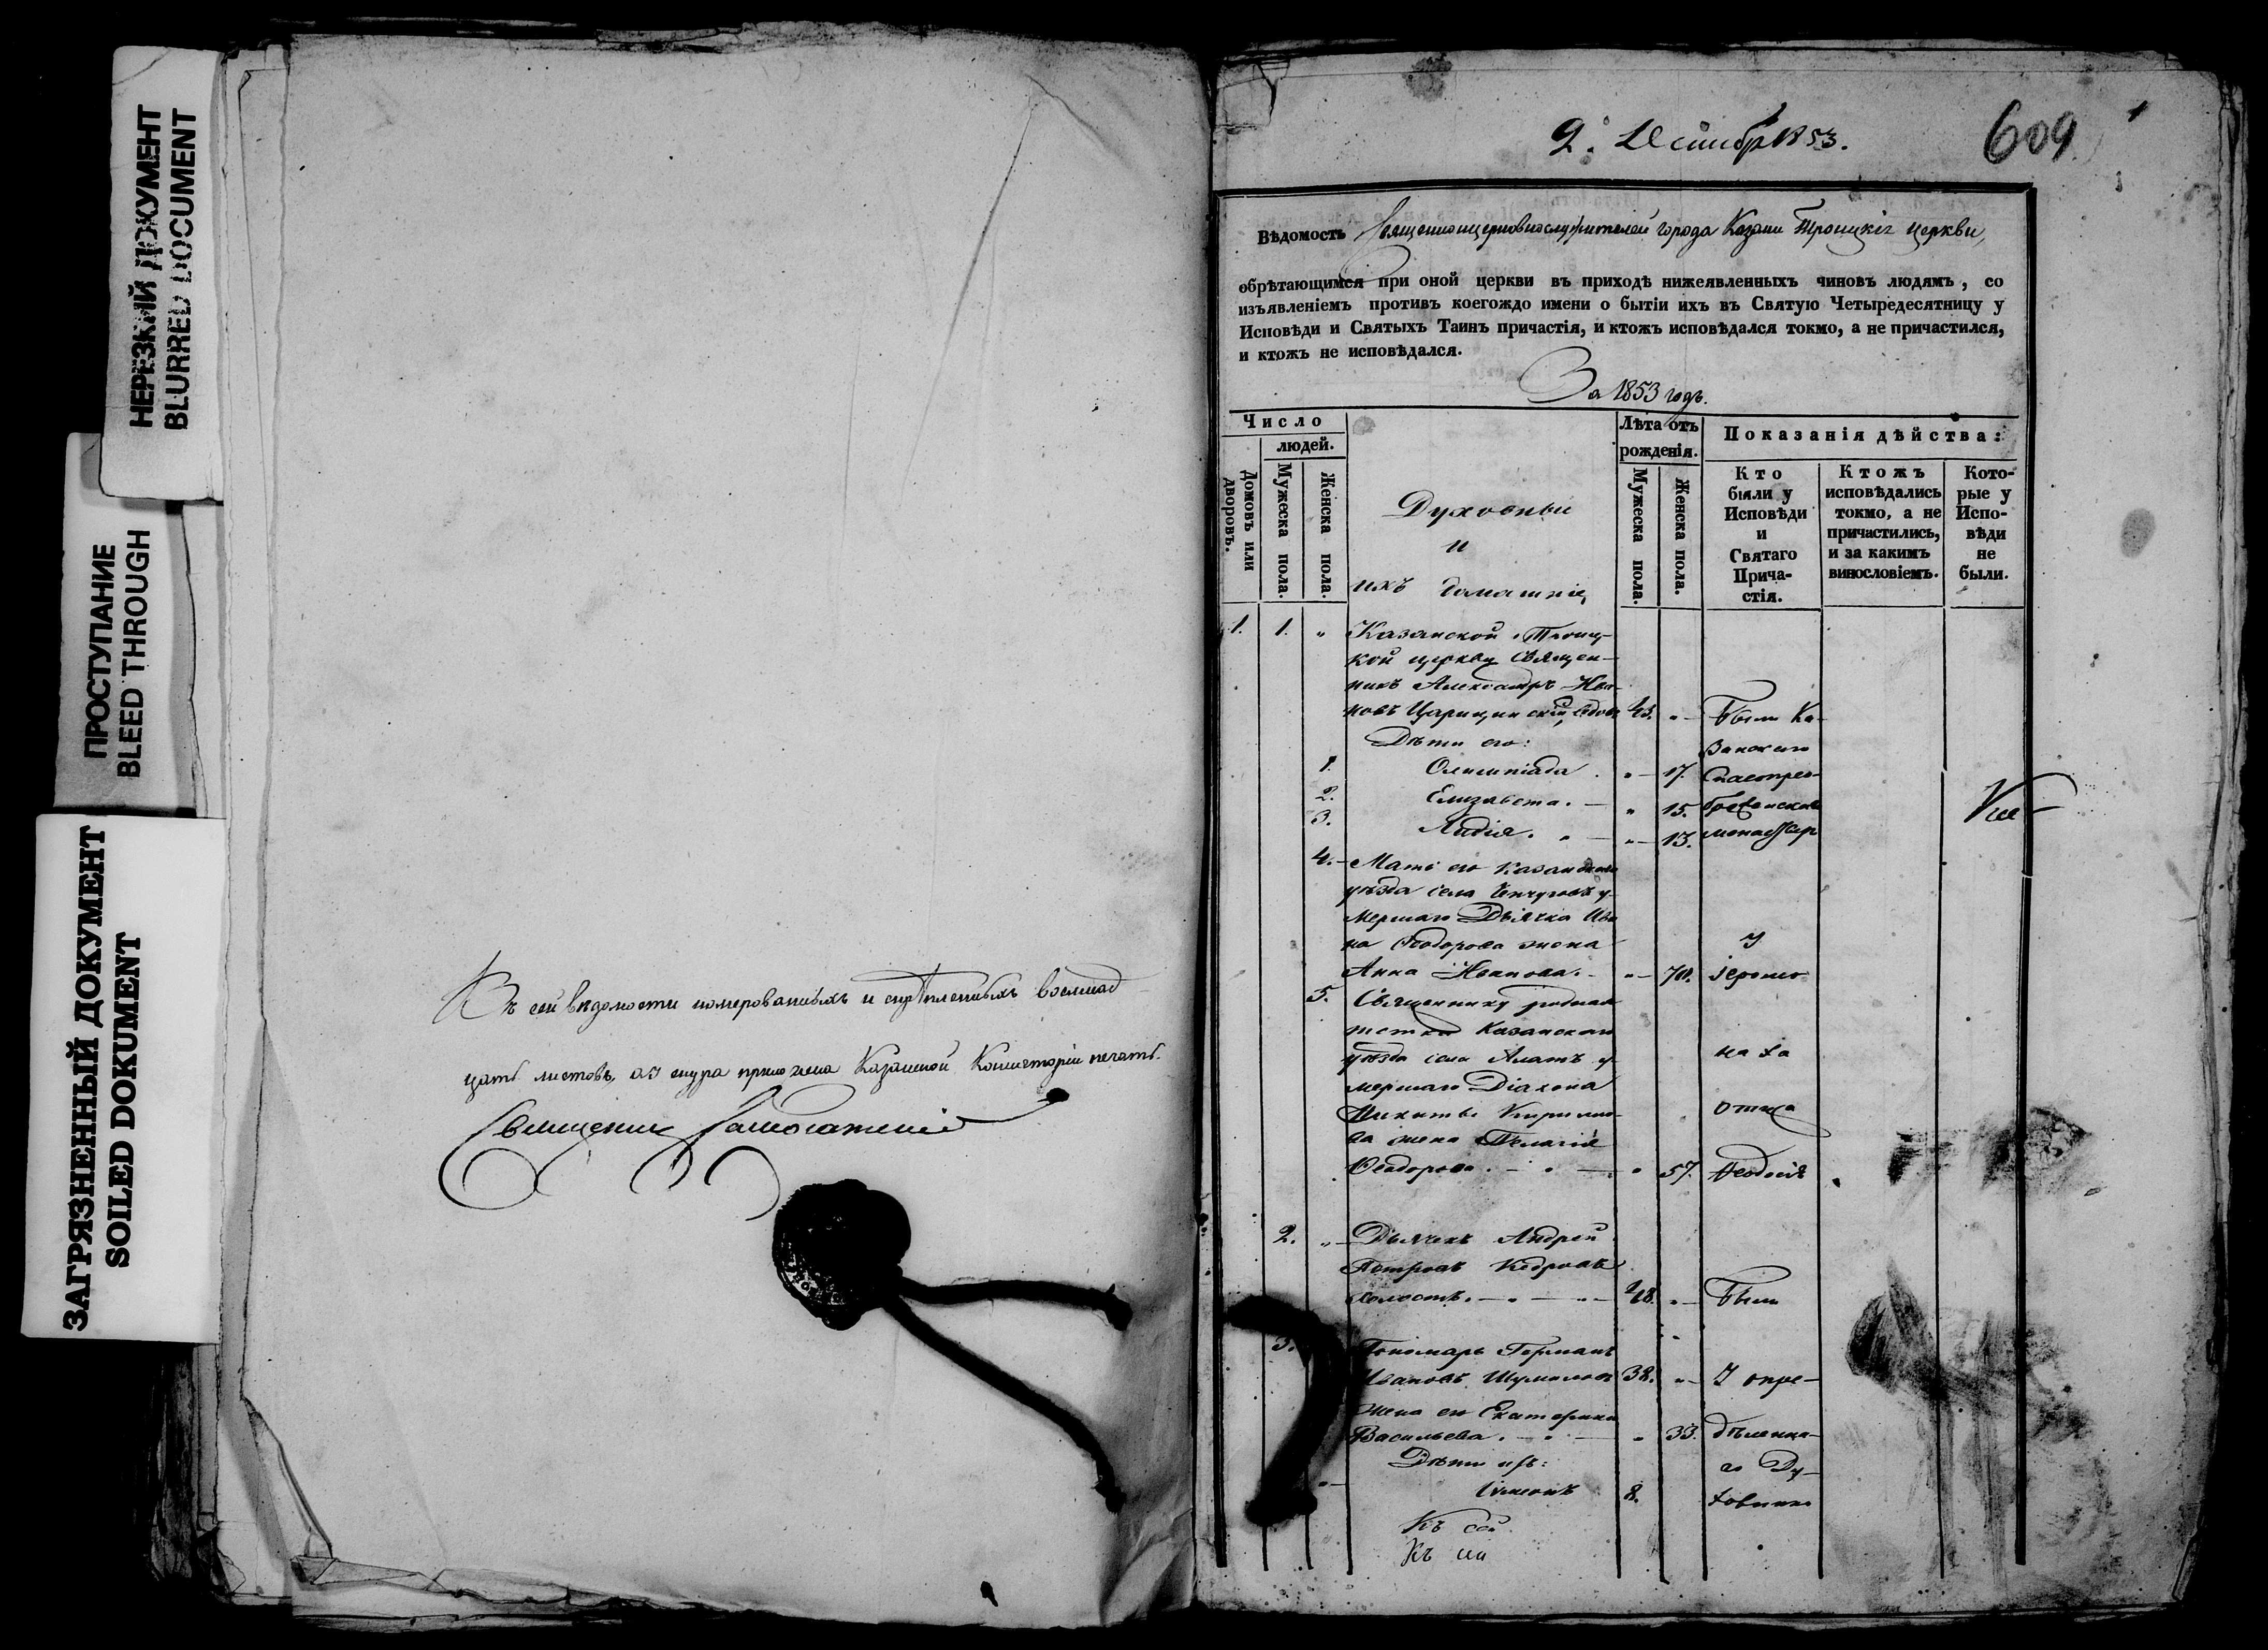 НЕРЕЗКИЙ ДОКУМЕНТ
BLURRED DOCUMENT
ПРОСТУПАНИЕ
BLEED THROUGH
ЗАГРЯЗНЕННЫЙ ДОКУМЕНТ
SOILED DOKUMENT
Въ сей вѣдомости номерованныхъ и скрѣпленныхъ восемнад-
цать листовъ, а у снура приложена Казанской Консисторіи печать.
Священникъ
609
1853.
Вѣдомость Священноцерковнослужителей города Казани Троицкія церкви,
обрѣтающимся при оной церкви въ приходѣ нижеявленныхъ чиновъ людямъ, со
изъявленіемъ противъ коегождо имени о бытіи ихъ въ Святую Четыредесятницу у
Исповѣди и Святыхъ Таинъ причастія, и ктожъ исповѣдался токмо, а не причастился,
и ктожъ не исповѣдался.
За 1853 годъ.
Число
людей.
Домовъ или дворовъ.
Мужеска пола.
Женска пола.
Духовные
и
ихъ домашніе
Лѣта отъ
рожденія.
Мужеска пола.
Женска пола.
Показанія дѣйства:
Кто
были у
Исповѣди
и
Святаго
Прича-
стія.
Ктожъ
исповѣдались
токмо, а не
причастились,
и за какимъ
винословіемъ.
Кото-
рые у
Испо-
вѣди
не
были.
1. 1. „ Казанской Троиц-
кой церкви Священ-
никъ Александръ Ива-
новъ Царицынскій, вдовъ 43. „ Были Ка-
Дѣти его: занскаго
1. Олимпіада „ 17. Спасопрео-
2. Елизавета „ 15.
3. Лидія „ 13. монастыр
4. Мать его Казанскаго
уѣзда села у-
мершаго Дьячка Ива
на Ѳеодорова жена у
Анна Иванова „ 70. іеромо-
5. Священнику родная
тетка Казанскаго
уѣзда села Алатъ у- наха
мершаго Діакона
Никиты Кирилло- отца
ва жена Пелагія
Ѳеодорова „ 57. Ѳеодосія
2. „ Дьячекъ Андрей
Петровъ Кедровъ
холостъ „ Былъ
3. Пономарь Германъ
Ивановъ 38. „ У опре-
жена его Екатерина
Васильева „ 33. дѣленна-
Дѣти ихъ: го Ду-
Симеонъ 8. ховника
Къ сей